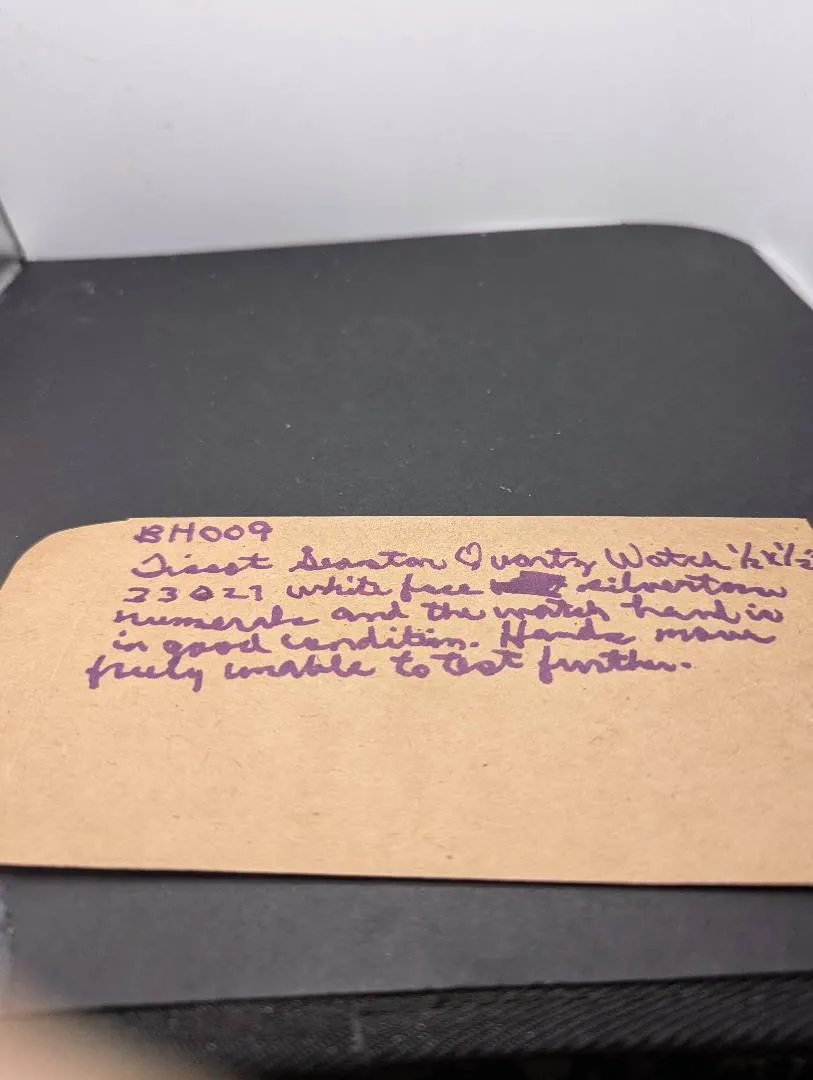 BH009
Tissot Seastar Quartz Watch 1/2 x 1/2
33021 white face silvertone
numerals and the watch band is
in good condition. Hands move
freely unable to test further.